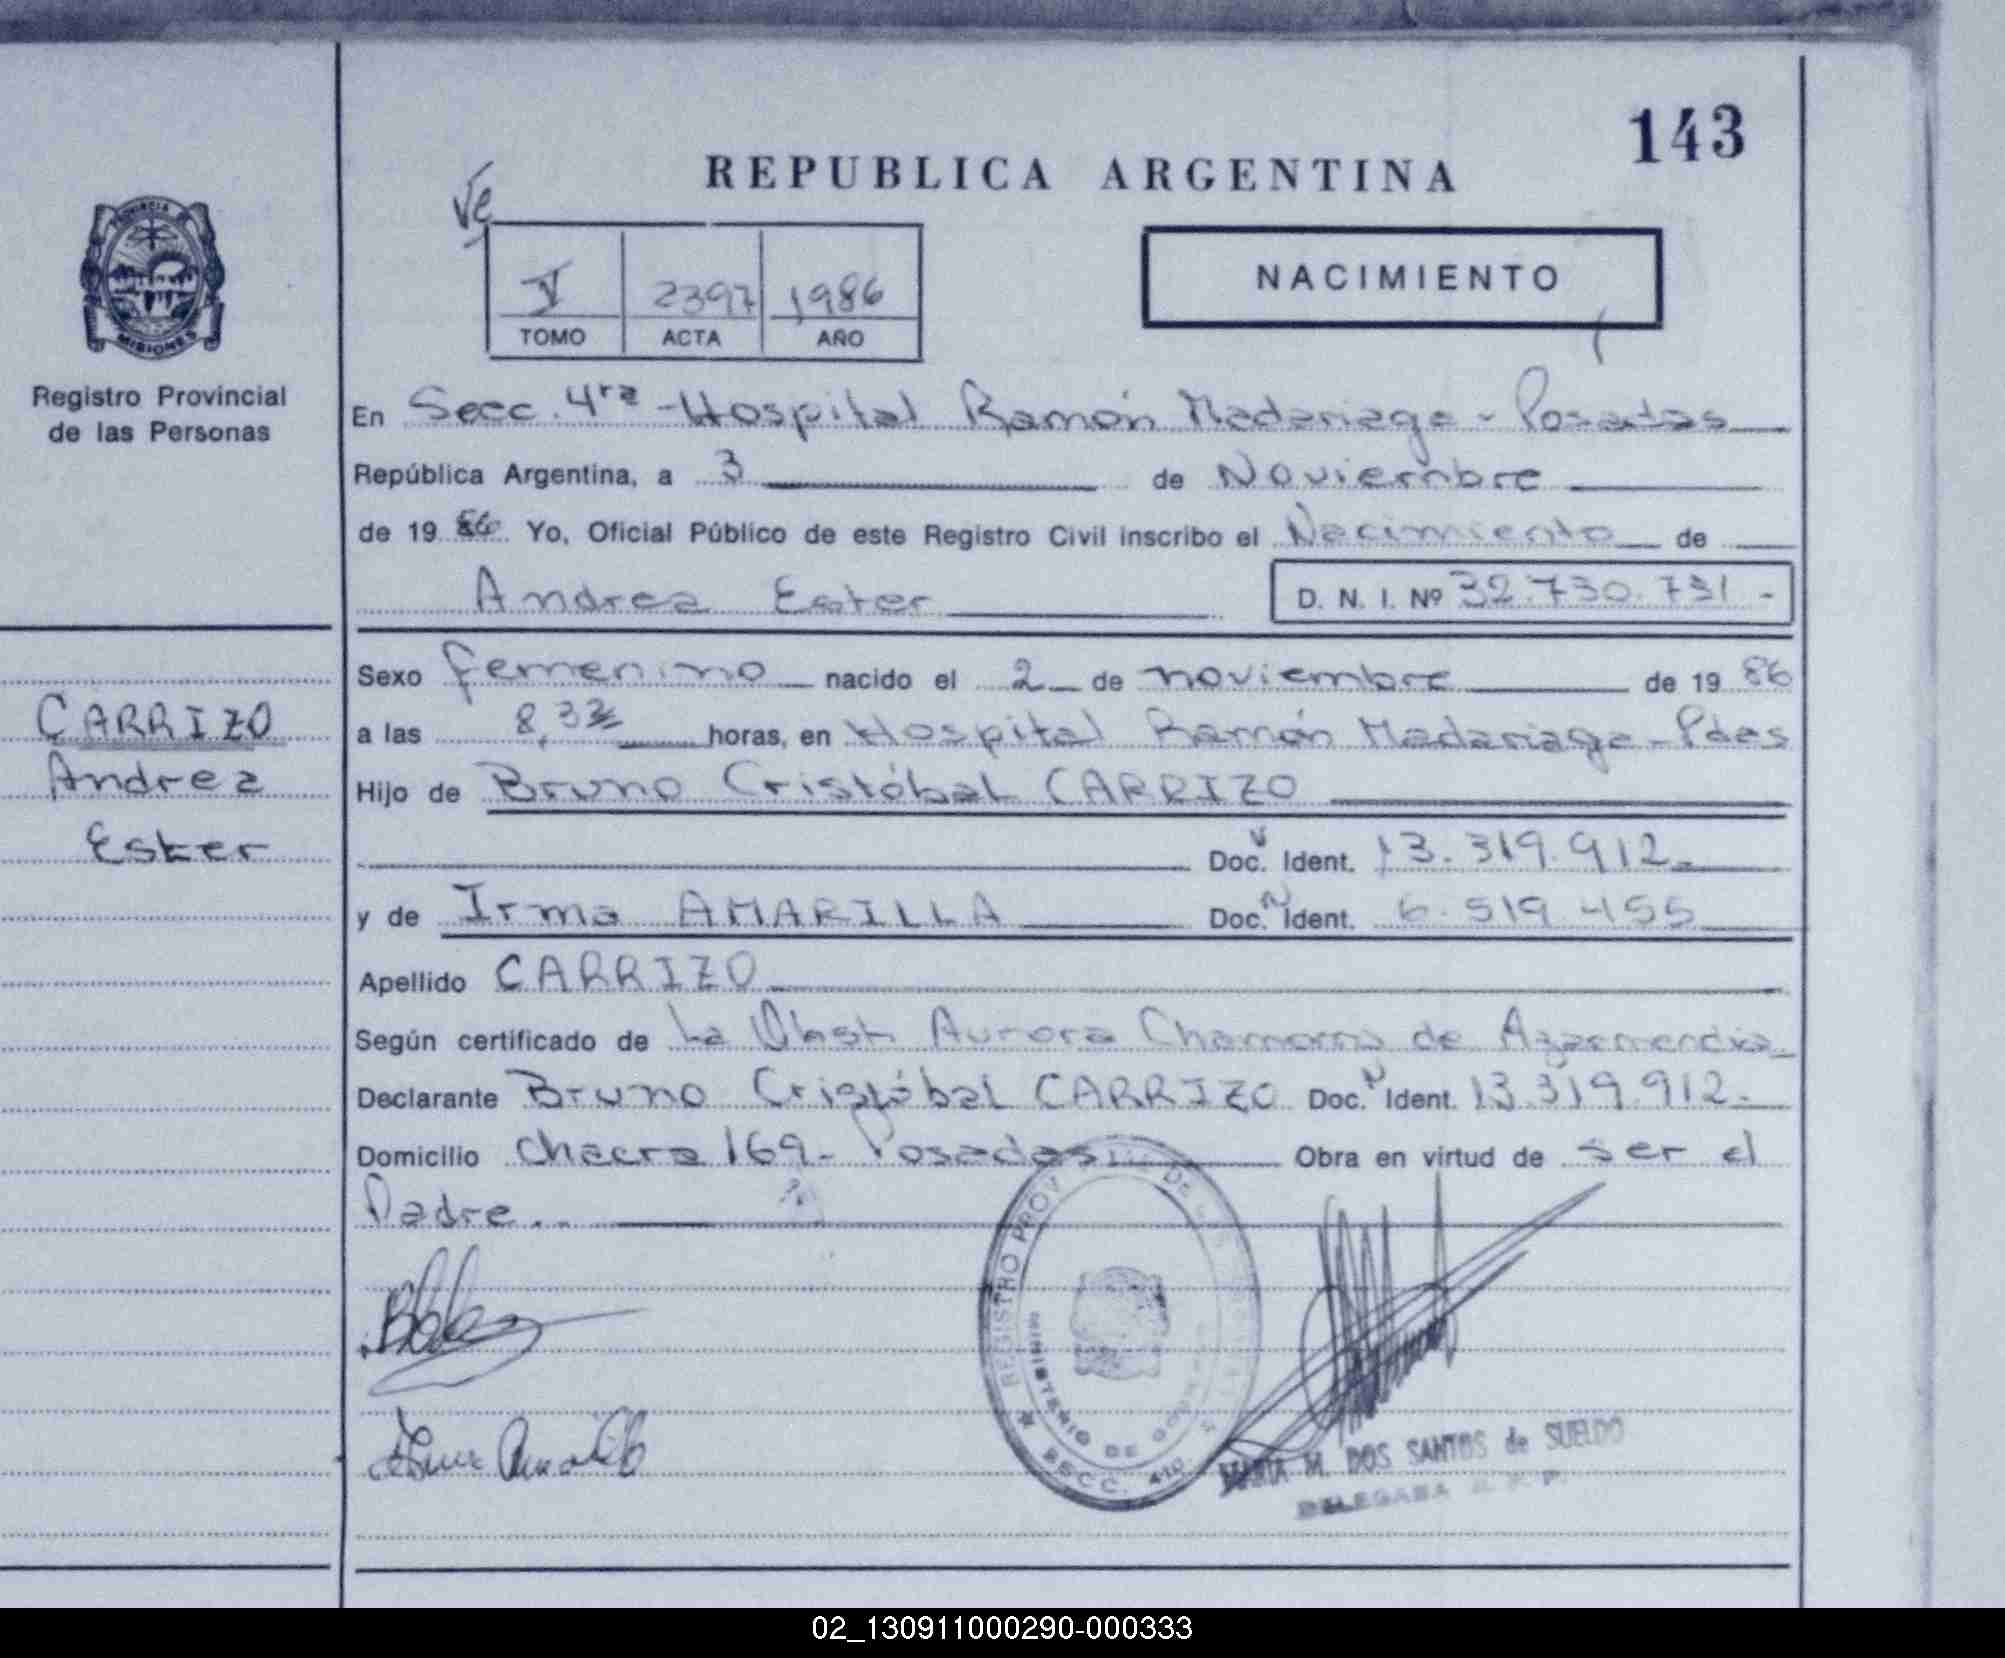 143
REPUBLICA ARGENTINA
PROVINCIA DE
MISIONES
Registro Provincial
de las Personas
NACIMIENTO
V 2397 1986
TOMO ACTA AÑO
En Secc. 4ra - Hospital Ramón Madariaga - Posadas
República Argentina, a 3 de Noviembre
de 19 86 Yo, Oficial Público de este Registro Civil inscribo el Nacimiento de
Andrea Ester D. N. I. Nº 32.730.731 -
Sexo femenino nacido el 2 de noviembre de 19 86
CARRIZO
a las 8,32 horas, en Hospital Ramón Madariaga - Pdas
Andrea
Hijo de Bruno Cristóbal CARRIZO
Ester
Doc. Ident. 13.319.912.
y de Irma AMARILLA Doc. Ident. 6.519.455
Apellido CARRIZO
Según certificado de La Obst. Aurora Chamorro de
Declarante Bruno Cristóbal CARRIZO Doc. Ident. 13.319.912.
Domicilio Chacra 169 - Posadas Obra en virtud de ser el
Padre..
REGISTRO PROV. DE LAS
MINISTERIO DE GOBIERNO
SECC. 4ta
Irma Amarilla
MARIA M. DOS SANTOS de SUELDO
DELEGADA R. P. P.
02_130911000290-000333